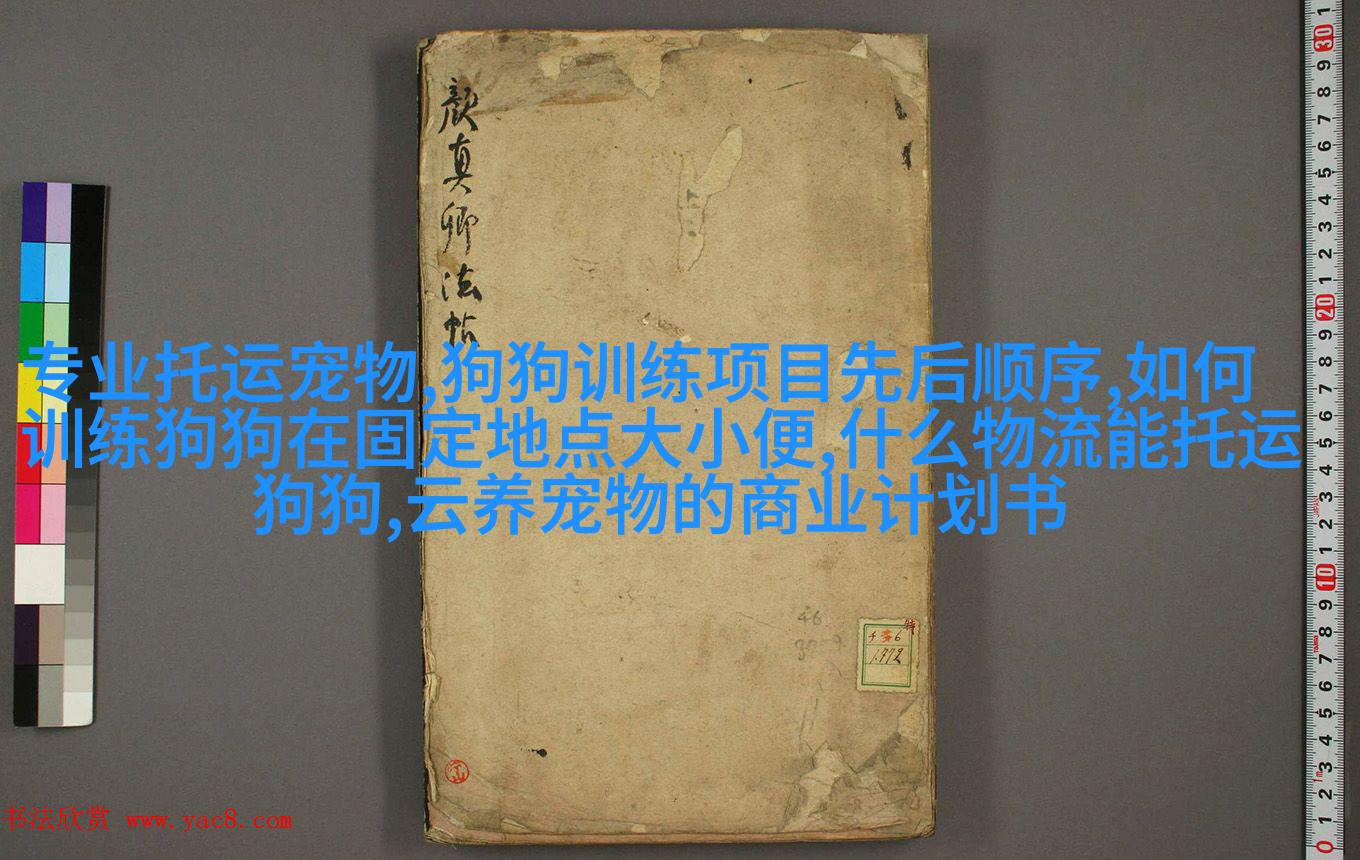 颜真卿法帖
专业托运宠物,狗狗训练项目先后顺序,如何
训练狗狗在固定地点大小便,什么物流能托运
狗狗,云养宠物的商业计划书
46
特
1772
书法欣赏 www.yac8.com